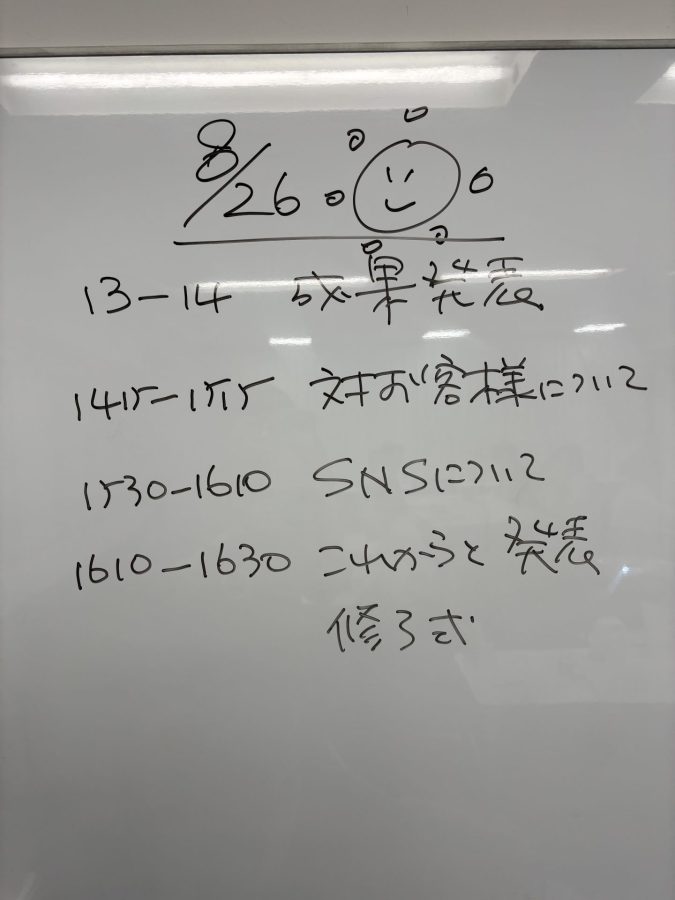 8/26
13-14 成果発表
1415-1515 対お客様について
1530-1610 SNSについて
1610-1630 これからと発表
修了式